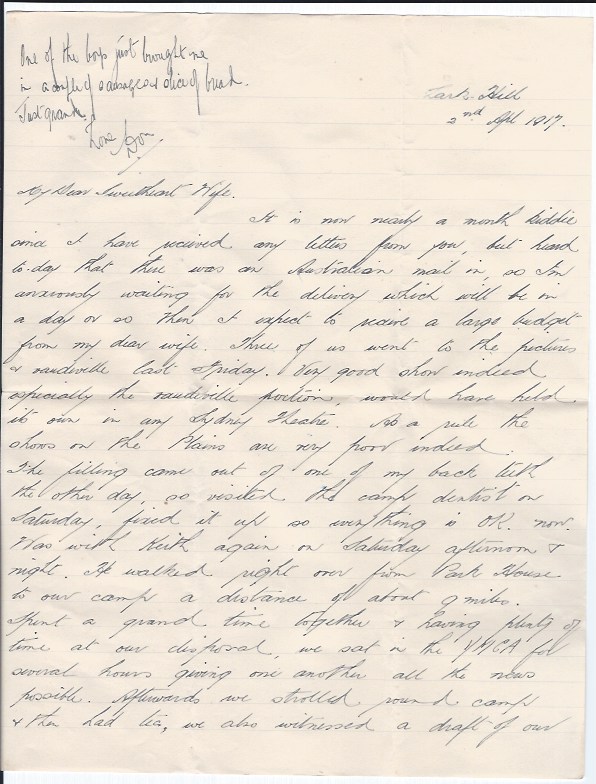 One of the boys just brought me
in a couple of sausages & slice of bread.
Just grand.
Love Don
Lark Hill
2nd Apl 1917.
My Dear Sweetheart Wife.
It is now nearly a month Kiddie
since I have recieved any letters from you, but heard
to-day that there was an Australian mail in, so I'm
anxiously waiting for the delivery which will be in
a day or so then I expect to recive a large budget
from my dear wife. Three of us went to the pictures
& vaudiville last Friday. Very good show indeed
especially the vaudiville portion, would have held
its own in any Sydney Theatre. As a rule the
shows on the Plains are very poor indeed.
The filling came out of one of my back teeth
the other day, so visited the camp dentist on
Saturday, fixed it up so everything is OK. now.
Was with Keith again on Saturday afternoon &
night. He walked right over from Park House
to our camp a distance of about 9 miles.
Spent a grand time together & having plenty of
time at our disposal, we sat in the YMCA for
several hours giving one another all the news
possible. Afterwards we strolled round camp
& then had tea, we also witnessed a draft of our